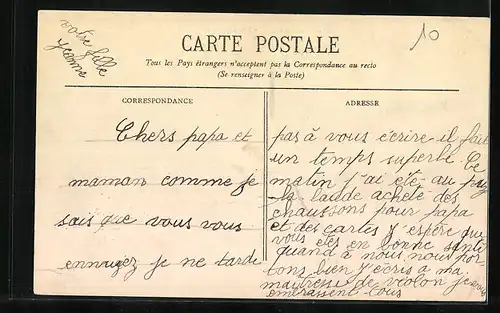 votre fille
Jeanne
10
CARTE POSTALE
Tous les Pays étrangers n'acceptent pas la Correspondance au recto
(Se renseigner à la Poste)
CORRESPONDANCE
Chers papa et
maman comme je
sais que vous vous
ennuyez je ne tarde
ADRESSE
pas à vous écrire il fait
un temps superbe Ce
matin j'ai été au puy
la laude acheté des
chaussons pour papa
et des cartes j'espère que
vous etes en bonne santé
quand à nous nous por
tons bien j'ecris a ma
maitresse de violon je vous
embrassent tous